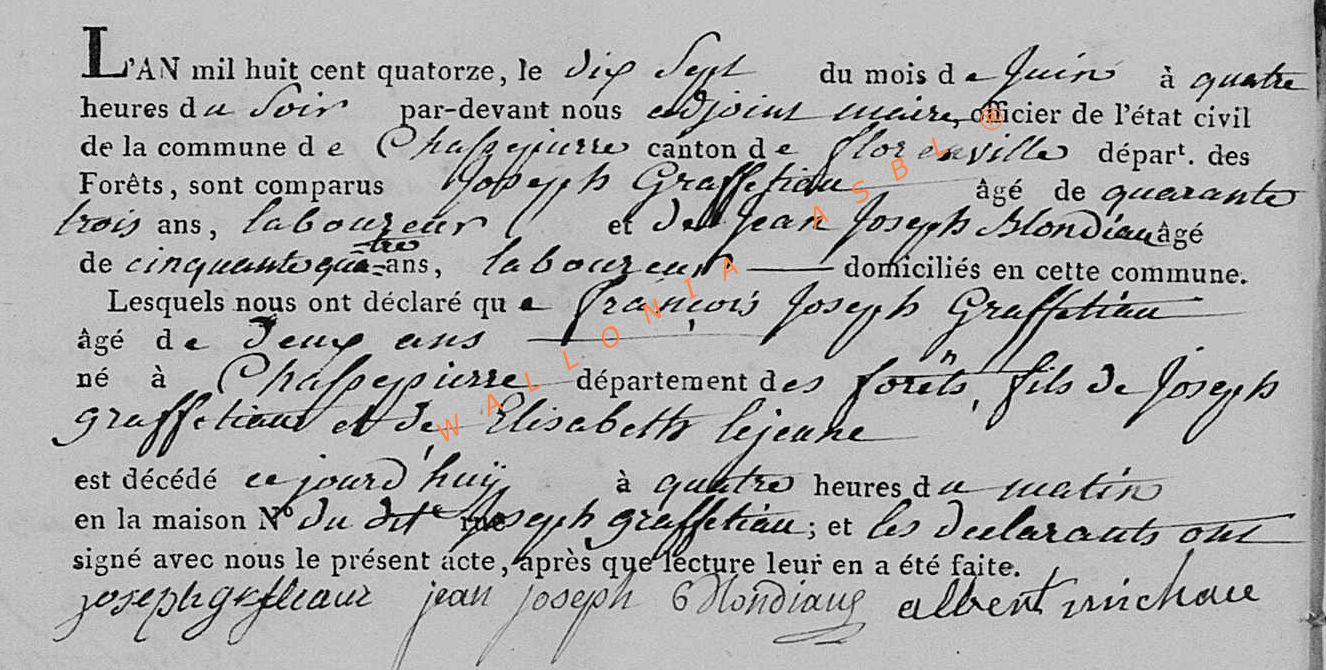 L'AN mil huit cent quatorze, le dix Sept du mois de Juin à quatre
heures du Soir par-devant nous adjoint maire, officier de l'état civil
de la commune de Chassepierre canton de florenville départ. des
Forêts, sont comparus Joseph Graffetiau âgé de quarante
trois ans, laboureur et de Jean Joseph Blondiau âgé
de cinquante quatre ans, laboureur domiciliés en cette commune.
Lesquels nous ont déclaré que françois Joseph Graffetiau
âgé de deux ans
né à Chassepierre département des forêts, fils de Joseph
graffetiau et de Elisabeth lejeune
est décédé ce jourd'huy à quatre heures du matin
en la maison N° du dit Joseph graffetiau; et les declarants ont
signé avec nous le présent acte, après que lecture leur en a été faite.
jean joseph Blondiaux albert michau
WALLONIA ASBL ®